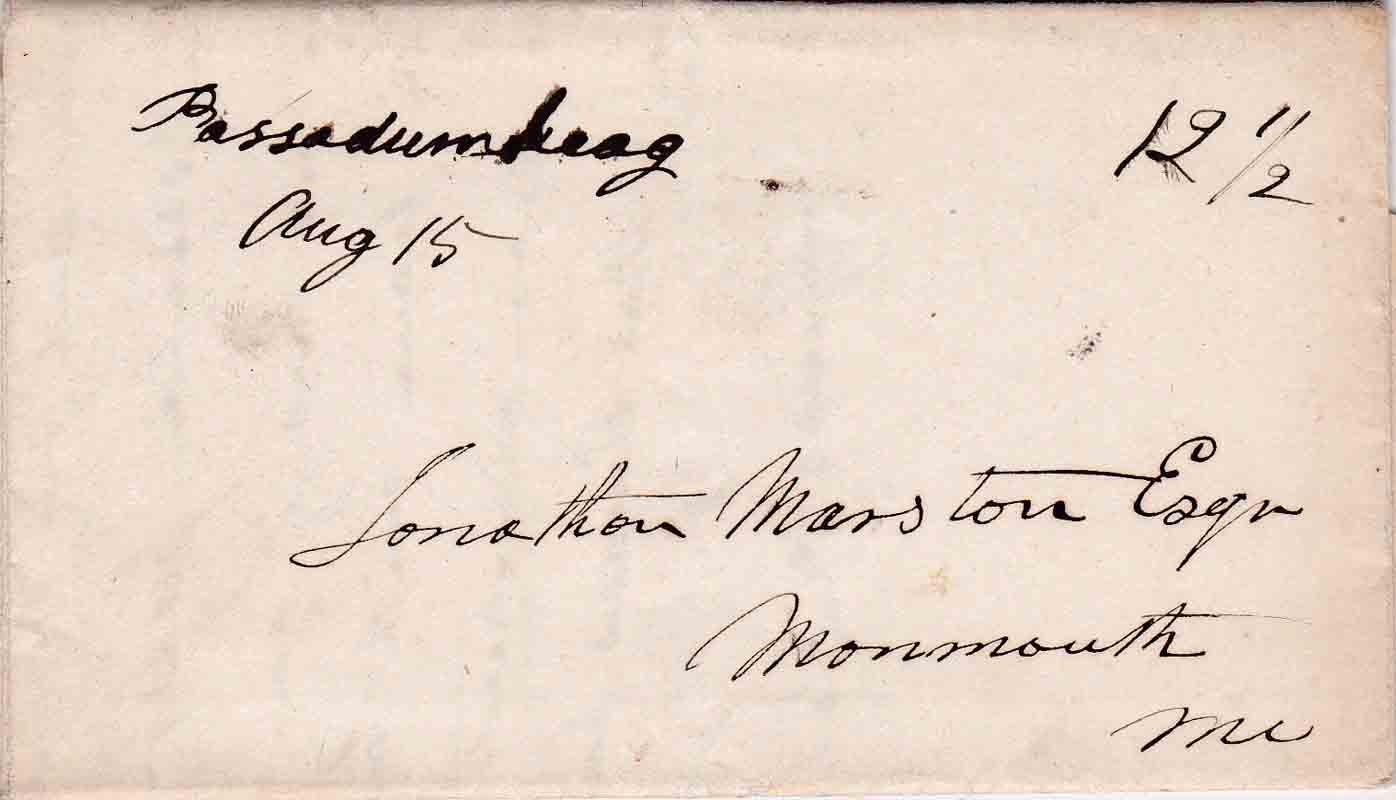 Passadumkeag
12 1/2
Aug 15
Jonathan Marston Esqr
Monmouth
Me